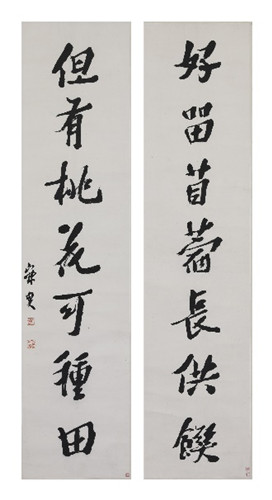 好留苜蓿長供饌
但有桃花可種田
寐叟